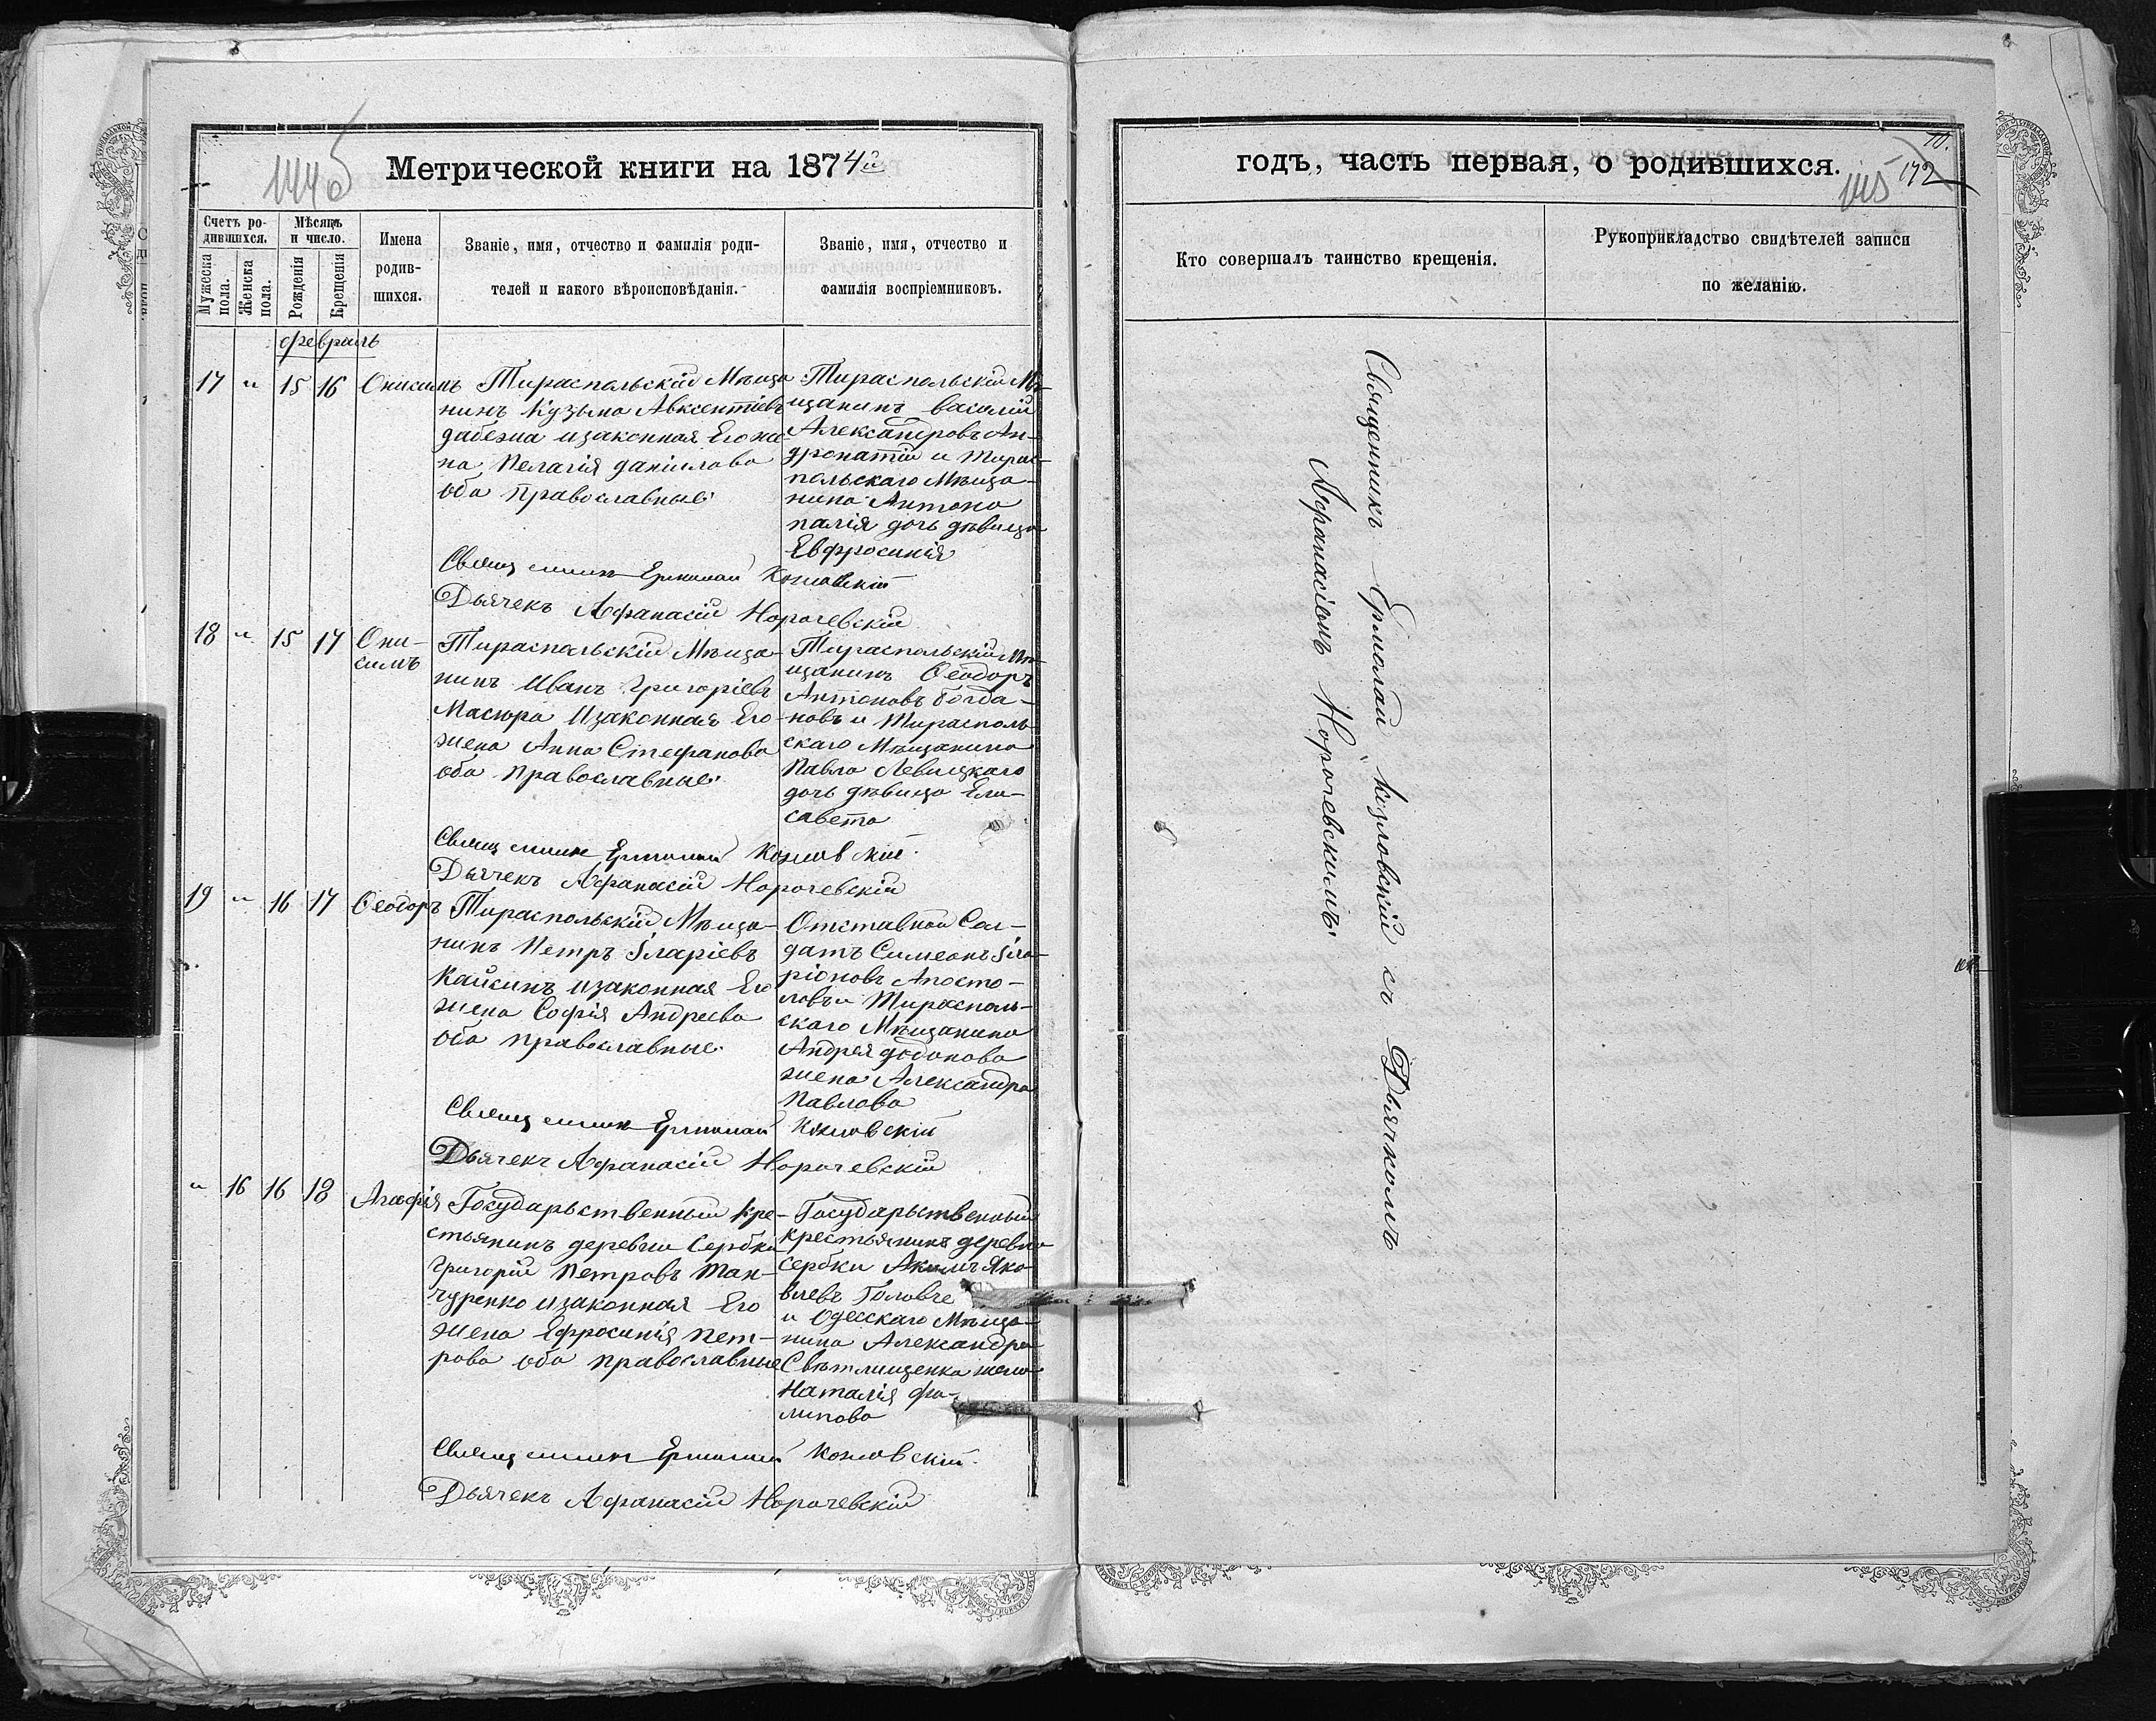 144об
Метрической книги на 1874й
Счетъ ро-
дившихся.
Мужеска
пола.
Женска
пола.
Мѣсяцъ
и число.
Рожденія
Крещенія
Имена
родив-
шихся.
Званіе, имя, отчество и фамилія роди-
телей и какого вѣроисповѣданія.
Званіе, имя, отчество и
фамилія воспріемниковъ.
февраль
17 " 15 16 Онисимъ
Тираспольскій Мѣща
нинъ Кузьма Авксентіевъ
дабежа изаконная Его же-
на Пелагія даніилова
оба православные
Тираспольскій Мѣ-
щанинъ василій
Александровъ Ан-
дронатій и Тирас-
польскаго Мѣща-
нина Антона
палія дочь дѣвица
Евфросинія
Священникъ Ермолай Козловскій
Дьячекъ Афанасій Норочевскій
18 " 15 17 Они-
симъ
Тираспольскій Мѣща-
нинъ Иванъ Григоріевъ
Масюра Изаконная Его
жена Анна Стефанова
оба православные
Тираспольскій Мѣ-
щанинъ Ѳеодоръ
Антоновъ Богда-
новъ и Тирасполь-
скаго Мѣщанина
Павла Левицкаго
дочь дѣвица Ели-
савета
Священникъ Ермолай Козловскій
Дьячекъ Афанасій Норочевскій
19 " 16 17 Ѳеодоръ
Тираспольскій Мѣща-
нинъ Петръ Іларіевъ
Кайсинъ изаконная Его
жена Софія Андреева
оба православные
Отставной Сол-
датъ Симеонъ Іла-
ріоновъ Апосто-
ловъ и Тирасполь-
скаго Мѣщанина
Андрея додонова
жена Александра
Павлова
Священникъ Ермолай Козловскій
Дьячекъ Афанасій Норочевскій
" 16 16 18 Агафія
Государьственный кре-
стьянинъ деревни Сербки
Григорій Петровъ Ман-
чуренко изаконная Его
жена Ефросинія Пет-
рова оба православные
Государьственый
крестьянинъ деревни
сербки Акимъ Яко-
влевъ Головче
и Одесскаго Мѣща-
нина Александра
Свѣтлищенка жена
Наталія фи-
липова
Священникъ Ермолай Козловскій
Дьячекъ Афанасій Норочевскій
10.
172
145
годъ, часть первая, о родившихся.
Кто совершалъ таинство крещенія.
Рукоприкладство свидѣтелей записи
по желанію.
Священникъ Ермолай Козловскій съ Дьячкомъ
Афанасіемъ Норочевскимъ